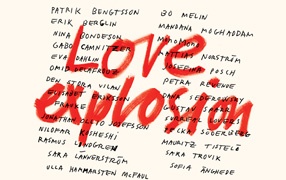 PATRIK BENGTSSON
ERIK BERGLIN
NINA BONDESON
GABO CAMNITZER
EVA DAHLIN
OMID DELAFROUZ
DEN STORA VILAN
ELISABET ERIKSSON
FRANKE
JONATHAN ELLYO JOSEFSSON
NILOFAR KOSHESHI
RASMUS LONDGREN
SARA LÄNNERSTRÖM
ULLA HAMMARSTEN MCFAUL
BO MELIN
MANDANA MOGHADDAM
MONOMONO
MATTIAS NORSTRÖM
JOSEFINA POSCH
PETRA REVENUE
DANA SEDEROWSKY
GUSTAV SPARR
SURREAL LOVERS
PECKA SÖDERBERG
MAURITZ TISTELÖ
SARA TROVIK
SOFIA ÄNGHEDE
Love
explosion